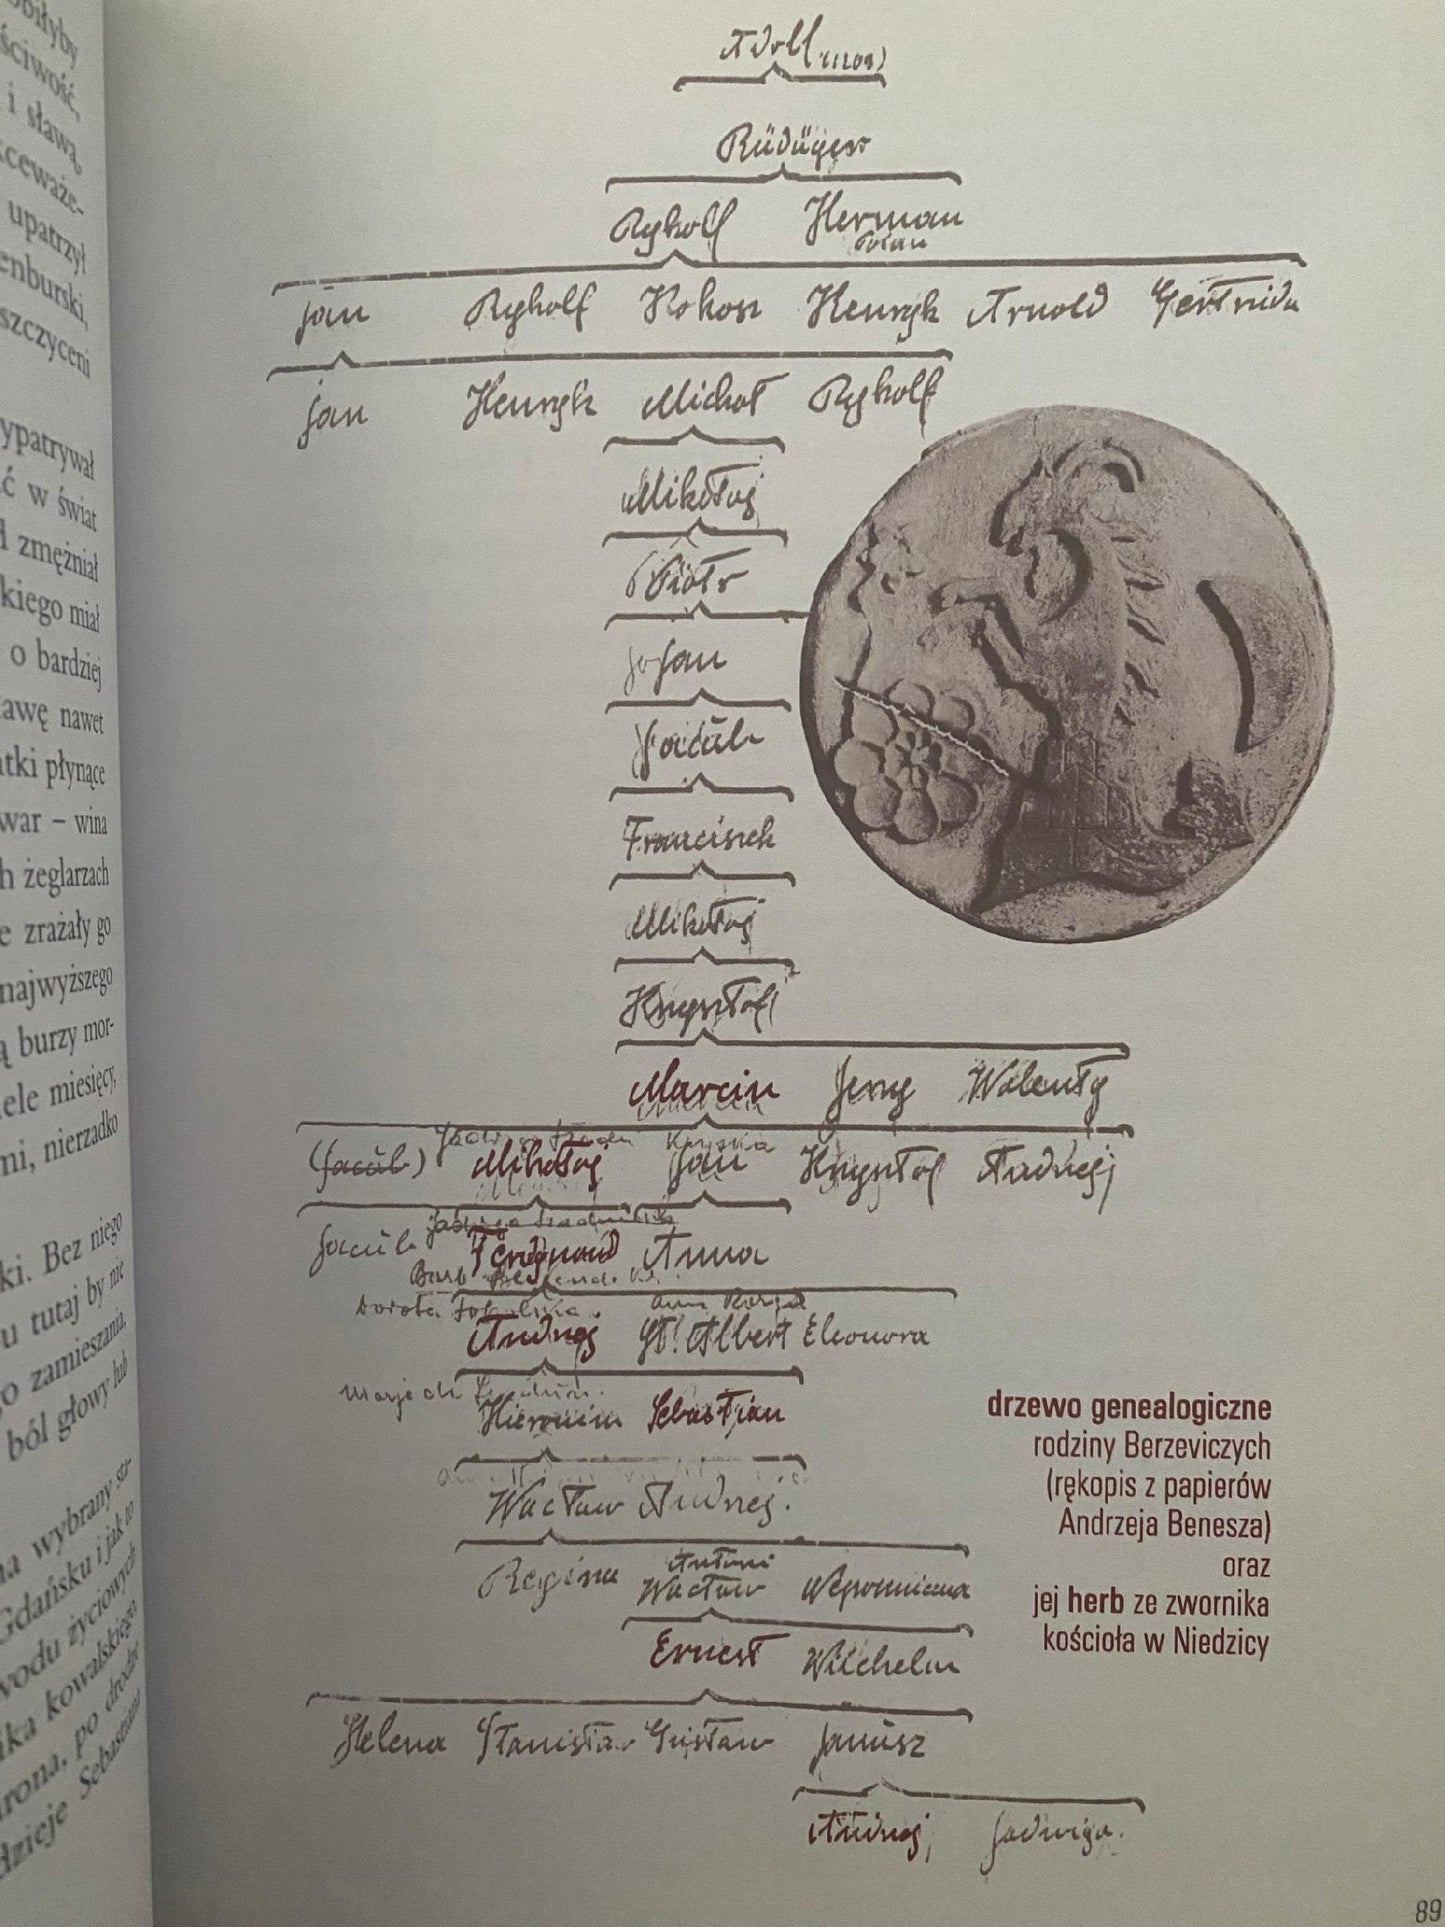 ściwość,
i sławą,
upatrzył
enburski,
szczyceni
ypatrywał
ć w świat
d zmężniał
kiego miał
o bardziej
ławę nawet
atki płynące
war – wina
h żeglarzach
e zrażały go
najwyższego
ą burzy mor-
iele miesięcy,
mi, nierzadko
ki. Bez niego
u tutaj by nie
o zamieszania.
ból głowy lub
na wybrany sta-
Gdańsku i jak to
wodu życiowych
ka kowalskiego
rona, po drodze
dzieje Sebastiana
Adolf (1209)
Rüdüger
Rykolf Herman
Polan
Jan Rykolf Kokosz Henryk Arnold Gertruda
Jan Henryk Michał Rykolf
Mikołaj
Piotr
Jan
Jacūb
Franciszek
Mikołaj
Krzysztof
Marcin Jerzy Walenty
(Jacūb) Mikołaj Jan Krzysztof Andrzej
Jacūb Ferdynand Anna
Andrzej St. Albert Eleonora
Hieronim Sebastjan
Wacław Andrzej.
Antoni
Regina Wacław
Ernest Wilchelm
Helena Stanisław Gustaw Janūsz
Andrzej, Jadwiga.
drzewo genealogiczne
rodziny Berzeviczych
(rękopis z papierów
Andrzeja Benesza)
oraz
jej herb ze zwornika
kościoła w Niedzicy
89